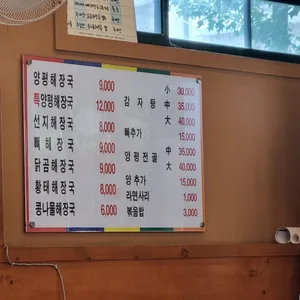 양평해장국 9,000
특양평해장국 12,000
선지해장국 8,000
뼈해장국 9,000
닭곰해장국 9,000
황태해장국 8,000
콩나물해장국 6,000
감자탕 小 30,000
中 35,000
大 40,000
뼈추가 15,000
양평전골 中 35,000
大 40,000
양추가 15,000
라면사리 1,000
볶음밥 3,000